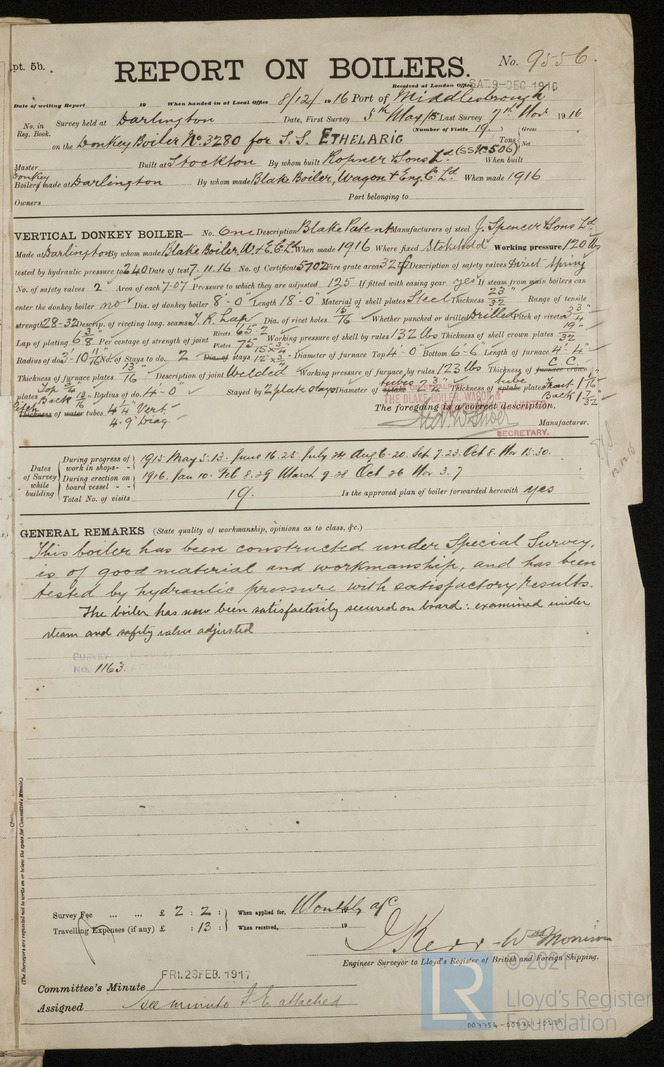 pt. 5b.
REPORT ON BOILERS.
No. 9556.
Received at London Office SAT. 9-DEC 1916
Date of writing Report 19 When handed in at Local Office 8/12/1916 Port of Middlesbrough
No. in Reg. Book. Survey held at Darlington Date, First Survey 5th May/15 Last Survey 7th Nov 1916
on the Donkey Boiler No. 3280 for S.S. ETHELARIC (Number of Visits 19) Tons Gross Net
Master Built at Stockton By whom built Ropner & Sons Ld (SS No 506) When built
Donkey Boilers made at Darlington By whom made Blake Boiler, Wagon & Eng. Co. Ld When made 1916
Owners Port belonging to
VERTICAL DONKEY BOILER— No. One Description Blake Patent Manufacturers of steel J. Spencer & Sons Ld
Made at Darlington By whom made Blake Boiler, W. & E. Co. Ld When made 1916 Where fixed Stokehold Working pressure 120 lbs
tested by hydraulic pressure to 240 Date of test 7.11.16 No. of Certificate 5702 Fire grate area 32 Description of safety valves Direct Spring
No. of safety valves 2 Area of each 7.07 Pressure to which they are adjusted 125 If fitted with easing gear yes If steam from main boilers can
enter the donkey boiler no Dia. of donkey boiler 8'-0" Length 18'-0" Material of shell plates Steel Thickness 23/32" Range of tensile
strength 28-32 Descrip. of riveting long. seams T.R. Lap Dia. of rivet holes 15/16" Whether punched or drilled Drilled Pitch of rivets 3 3/4"
Lap of plating 6 3/8" Per centage of strength of joint Rivets 65.2 Plates 75 Working pressure of shell by rules 132 lbs Thickness of shell crown plates 19/32"
Radius of do. 3'-10 11/16" No. of Stays to do. 2 Dia. of stays Diameter of furnace Top 4'-0" Bottom 6'-6" Length of furnace 4'-4"
Thickness of furnace plates 13/16" Description of joint Welded Working pressure of furnace by rules 123 lbs Thickness of furnace crown C.C.
plates Top 3/4" Back 13/16" Radius of do. 4'-0" Stayed by 2 plate stays Diameter of uptake tubes 2 3/4" Thickness of uptake plates tube Front 1 1/16" Back 1 3/32"
Pitch Thickness of water tubes 4 1/4" Vert. 4.9" Diag.
THE BLAKE BOILER, WAGON &
The foregoing is a correct description.
Manufacturer.
SECRETARY.
Dates of Survey while building
During progress of work in shops - - 1915 May 5.13. June 16.25. July 24. Aug 6.20. Sep 7.23. Oct 8. Nov 15.30.
During erection on board vessel - - - 1916. Jan 10. Feb 8.29 March 9.28 Oct 26 Nov 3.7
Total No. of visits 19. Is the approved plan of boiler forwarded herewith Yes
GENERAL REMARKS (State quality of workmanship, opinions as to class, &c.)
This boiler has been constructed under Special Survey,
is of good material and workmanship, and has been
tested by hydraulic pressure with satisfactory results.
The boiler has now been satisfactorily secured on board: examined under
steam and safety valves adjusted
No. 1163.
(The Surveyors are requested not to write on or below the space for Committee's Minute.)
Survey Fee ... ... £ 2 : 2 : When applied for, Monthly a/c
Travelling Expenses (if any) £ : 13 : When received, 19
J Kerr - Wm Morrison
Engineer Surveyor to Lloyd's Register of British and Foreign Shipping.
Committee's Minute FRI. 23 FEB. 1917
Assigned See minute F.E. attached
© 2021
LR
Lloyd's Register
Foundation